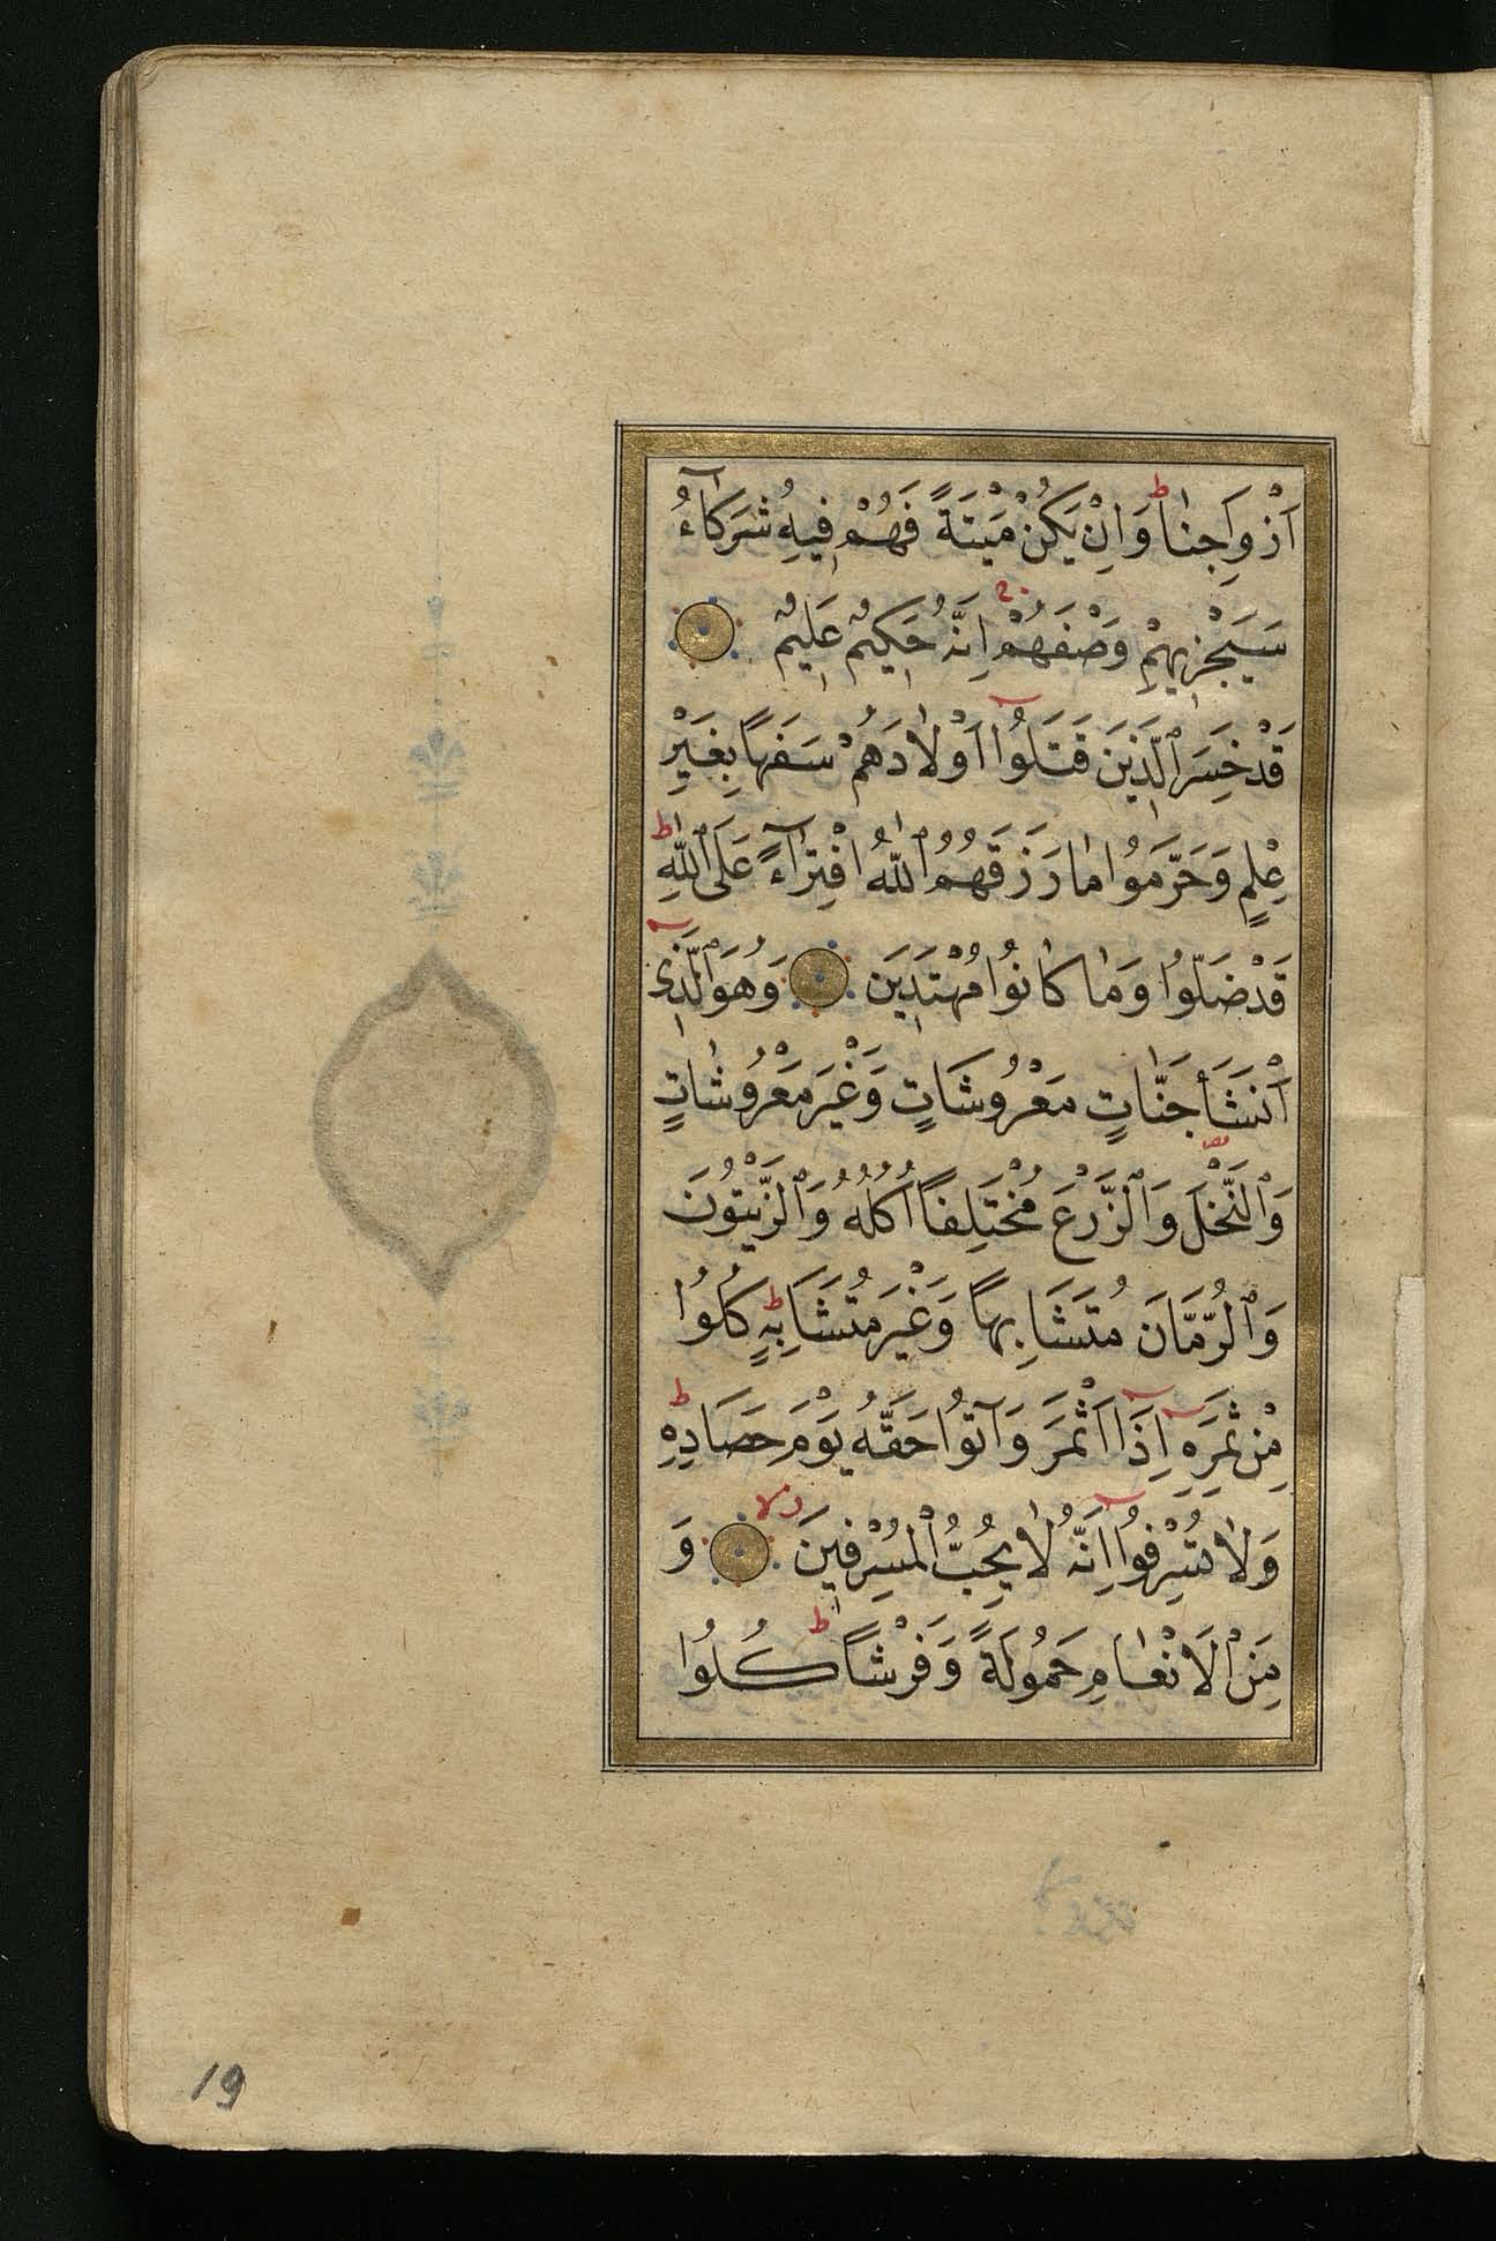 اَزْوَاجِنٰا وَاِنْ يَكُنْ مَيْتَةً فَهُمْ فِيهِ شُرَكٰآءُ
سَيَجْزِيهِمْ وَصْفَهُمْ اِنَّهُ حَكِيمٌ عَلِيمٌ
قَدْ خَسِرَ ٱلَّذِينَ قَتَلُوا اَوْلٰادَهُمْ سَفَهًا بِغَيْرِ
عِلْمٍ وَحَرَّمُوا مٰا رَزَقَهُمُ ٱللّٰهُ افْتِرٰآءً عَلَى ٱللّٰهِ
قَدْ ضَلُّوا وَمٰا كٰانُوا مُهْتَدِينَ وَهُوَ ٱلَّذِى
اَنْشَأَ جَنّٰاتٍ مَعْرُوشَاتٍ وَغَيْرَ مَعْرُوشٰاتٍ
وَٱلنَّخْلَ وَٱلزَّرْعَ مُخْتَلِفًا اُكُلُهُ وَٱلزَّيْتُونَ
وَٱلرُّمَّانَ مُتَشَابِهًا وَغَيْرَ مُتَشَابِهٍ كُلُوا
مِنْ ثَمَرِهِ اِذَا اَثْمَرَ وَآتُوا حَقَّهُ يَوْمَ حَصَادِهِ
وَلٰا تُسْرِفُوا اِنَّهُ لٰا يُحِبُّ ٱلْمُسْرِفِينَ وَ
مِنَ ٱلْاَنْعٰامِ حَمُولَةً وَفَرْشًا كُلُوا
19